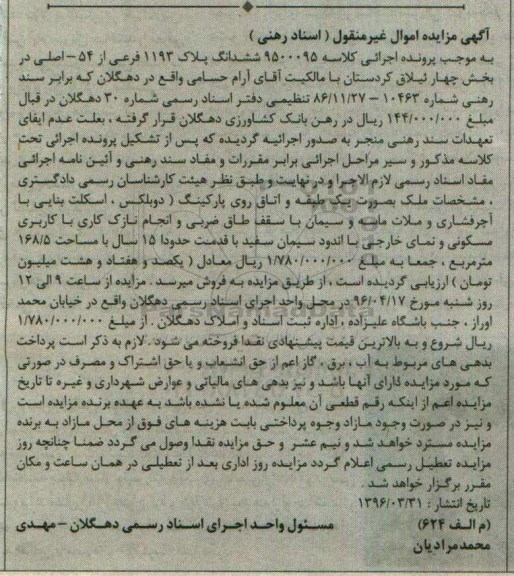 آگهی مزایده اموال غیرمنقول ( اسناد رهنی )
به موجب پرونده اجرائی کلاسه ۹۵۰۰۰۹۵ ششدانگ پلاک ۱۱۹۳ فرعی از ۵۴ – اصلی در
بخش چهار ئیلاق کردستان با مالکیت آقای آرام حسامی واقع در دهگلان که برابر سند
رهنی شماره ۱۰۴۶۳ – ۸۶/۱۱/۲۷ تنظیمی دفتر اسناد رسمی شماره ۳۰ دهگلان در قبال
مبلغ ۱۴۴/۰۰۰/۰۰۰ ریال در رهن بانک کشاورزی دهگلان قرار گرفته ، بعلت عدم ایفای
تعهدات سند رهنی منجر به صدور اجرائیه گردیده که پس از تشکیل پرونده اجرائی تحت
کلاسه مذکور و سیر مراحل اجرائی برابر مقررات و مفاد سند رهنی و آئین نامه اجرائی
مفاد اسناد رسمی لازم الاجرا و در نهایت و طبق نظر هیئت کارشناسان رسمی دادگستری
، مشخصات ملک بصورت یک طبقه و اتاق روی پارکینگ ( دوبلکس ، اسکلت بنایی با
آجرفشاری و ملات ماسه و سیمان با سقف طاق ضربی و انجام نازک کاری با کاربری
مسکونی و نمای خارجی با اندود سیمان سفید با قدمت حدودا ۱۵ سال با مساحت ۱۶۸/۵
مترمربع ، جمعا به مبلغ ۱/۷۸۰/۰۰۰/۰۰۰ ریال معادل ( یکصد و هفتاد و هشت میلیون
تومان ) ارزیابی گردیده است ، از طریق مزایده به فروش میرسد . مزایده از ساعت ۹ الی ۱۲
روز شنبه مورخ ۹۶/۰۴/۱۷ در محل واحد اجرای اسناد رسمی دهگلان واقع در خیابان محمد
اوراز ، جنب باشگاه علیزاده ، اداره ثبت اسناد و املاک دهگلان . از مبلغ ۱/۷۸۰/۰۰۰/۰۰۰
ریال شروع و به بالاترین قیمت پیشنهادی نقدا فروخته می شود . لازم به ذکر است پرداخت
بدهی های مربوط به آب ، برق ، گاز اعم از حق انشعاب و یا حق اشتراک و مصرف در صورتی
که مورد مزایده دارای آنها باشد و نیز بدهی های مالیاتی و عوارض شهرداری و غیره تا تاریخ
مزایده اعم از اینکه رقم قطعی آن معلوم شده یا نشده باشد به عهده برنده مزایده است
و نیز در صورت وجود مازاد وجوه پرداختی بابت هزینه های فوق از محل مازاد به برنده
مزایده مسترد خواهد شد و نیم عشر و حق مزایده نقدا وصول می گردد ضمنا چنانچه روز
مزایده تعطیل رسمی اعلام گردد مزایده روز اداری بعد از تعطیلی در همان ساعت و مکان
مقرر برگزار خواهد شد .
تاریخ انتشار : ۱۳۹۶/۰۳/۳۱
(م الف ۶۲۴) مسئول واحد اجرای اسناد رسمی دهگلان – مهدی
محمدمرادیان